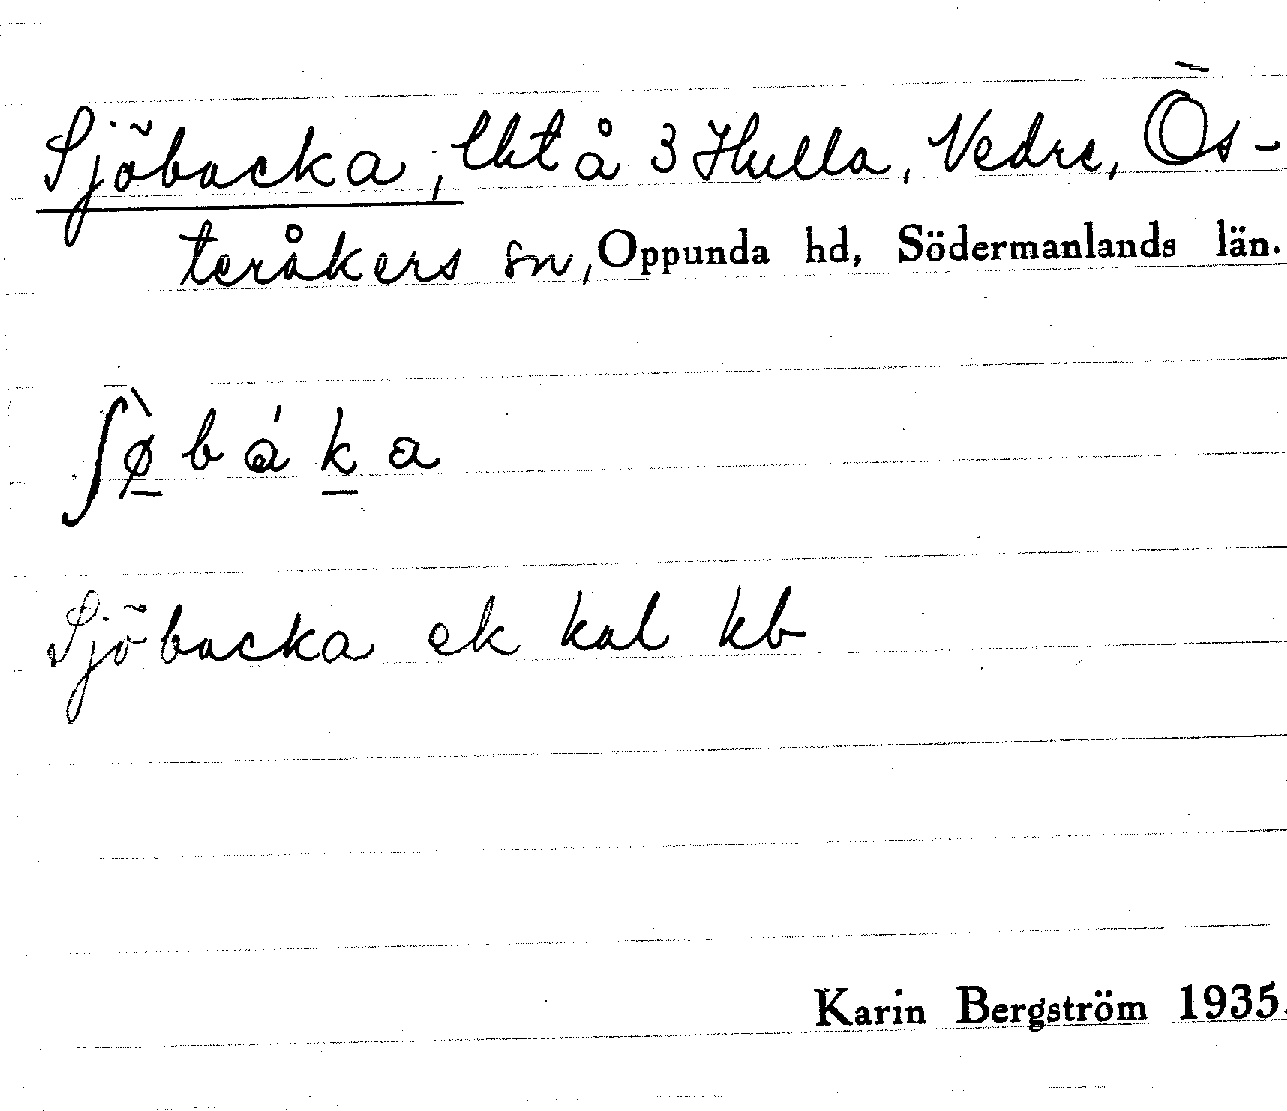 Sjöbacka, lht å 3 Hulla, Vedre, Ös-
teråkers sn, Oppunda hd, Södermanlands län.
ʃø̀báka
Sjöbacka ek kal kb
Karin Bergström 1935.